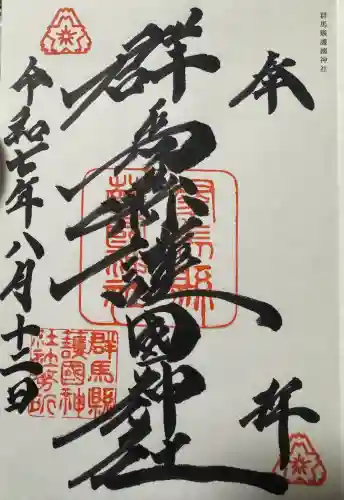 群馬縣護國神社
奉拝
群馬縣護國神社
令和七年八月十二日
群馬縣護國神社
群馬縣護國神社社務所